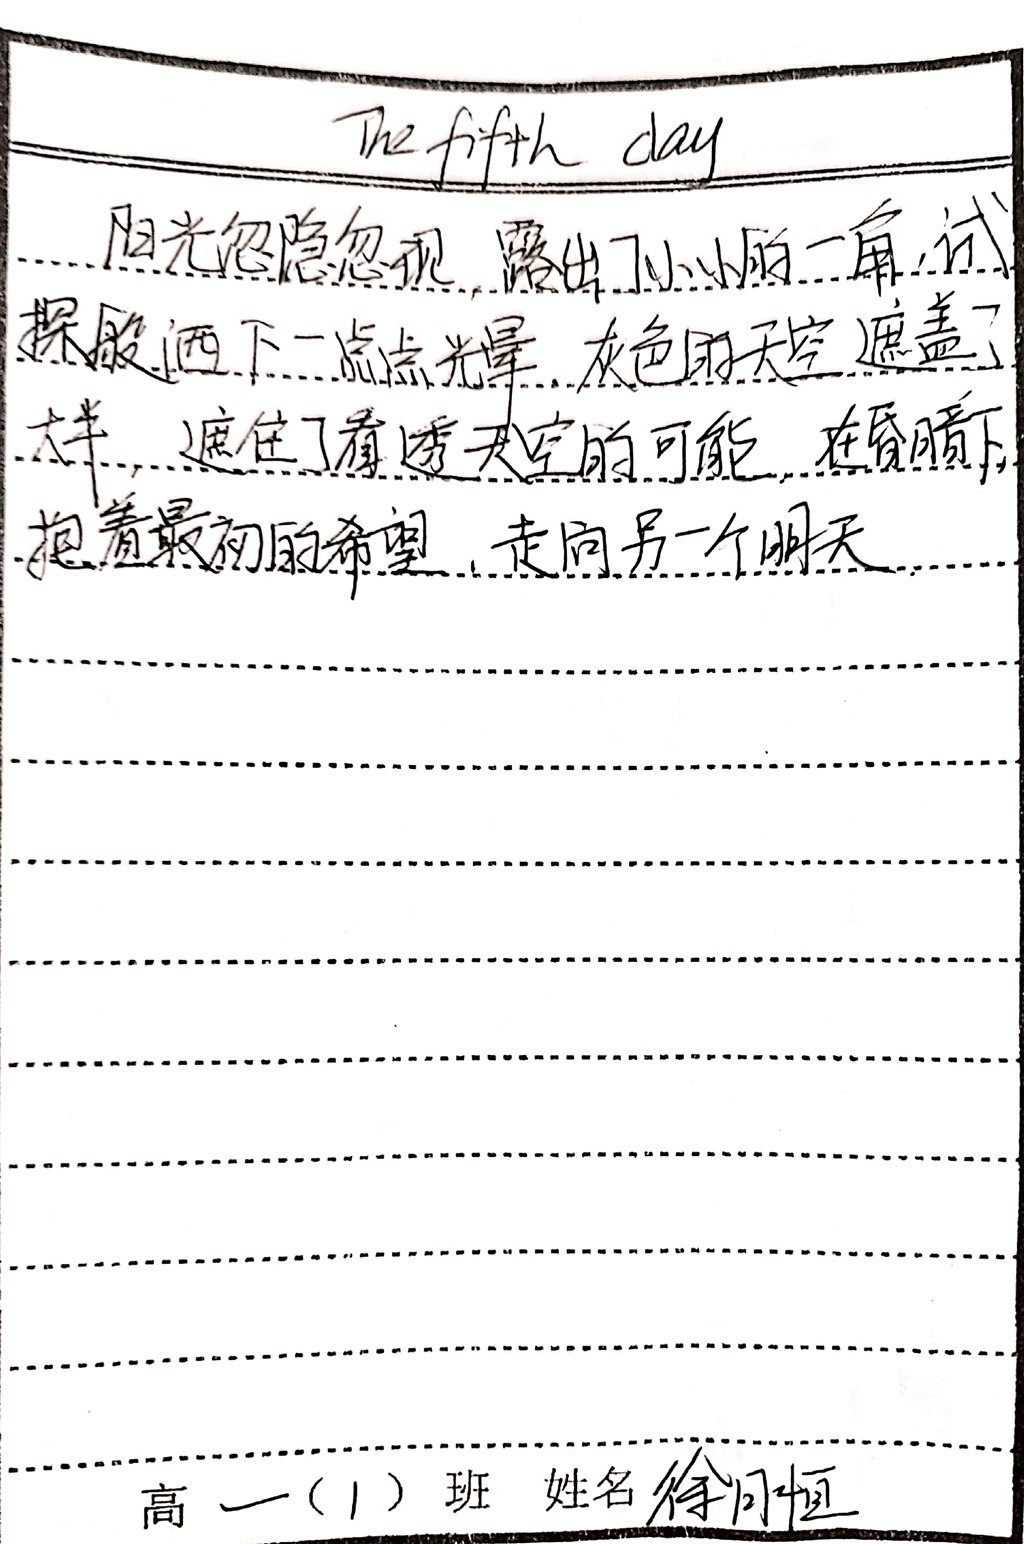 The fifth day
阳光忽隐忽现,露出了小小的一角,试
探般洒下一点点光晕.灰色的天空遮盖了
大半,遮住了看透天空的可能.在昏暗下,
抱着最初的希望,走向另一个明天.
高一(1)班 姓名 徐日恒